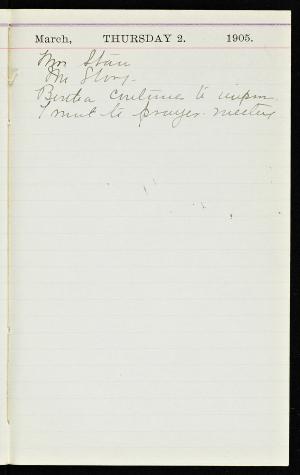 March, THURSDAY 2. 1905.
Mr Starr
Mr Story.
Bertha continues to
I went to prayer meeting